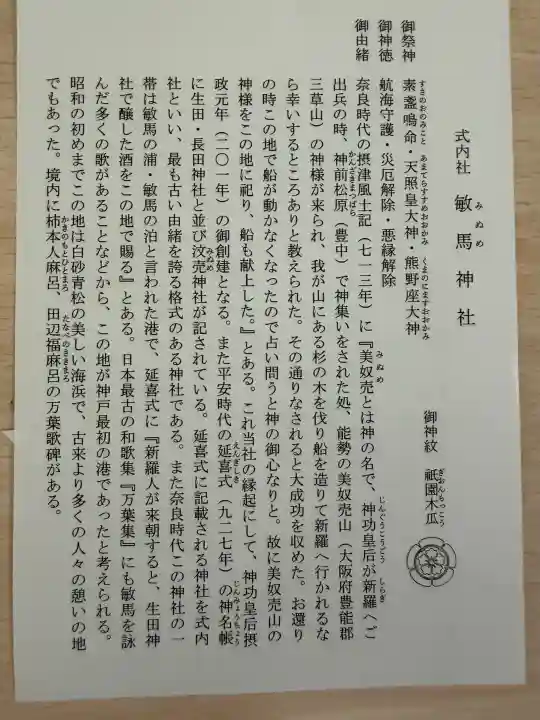 式内社 敏馬神社
みぬめ
御神紋 祇園木瓜
ぎおんもっこう
御祭神 素盞嗚命・天照皇大神・熊野座大神
すさのおのみこと あまてらすすめおおかみ くまのにますおおかみ
御神徳 航海守護・災厄解除・悪縁解除
御由緒 奈良時代の摂津風土記（七一三年）に『美奴売とは神の名で、神功皇后が新羅へご
みぬめ じんぐうこうごう しらぎ
出兵の時、神前松原（豊中）で神集いをされた処、能勢の美奴売山（大阪府豊能郡
かんざきまつばら
三草山）の神様が来られ、我が山にある杉の木を伐り船を造りて新羅へ行かれるな
ら幸いするところありと教えられた。その通りなされると大成功を収めた。お還り
の時この地で船が動かなくなったので占い問うと神の御心なりと。故に美奴売山の
神様をこの地に祀り、船も献上した。』とある。これ当社の縁起にして、神功皇后摂
政元年（二〇一年）の御創建となる。また平安時代の延喜式（九二七年）の神名帳
えんぎしき じんみょうちょう
に生田・長田神社と並び汶売神社が記されている。延喜式に記載される神社を式内
みぬめ
社といい、最も古い由緒を誇る格式のある神社である。また奈良時代この神社の一
帯は敏馬の浦・敏馬の泊と言われた港で、延喜式に『新羅人が来朝すると、生田神
社で醸した酒をこの地で賜る』とある。日本最古の和歌集『万葉集』にも敏馬を詠
んだ多くの歌があることなどから、この地が神戸最初の港であったと考えられる。
昭和の初めまでこの地は白砂青松の美しい海浜で、古来より多くの人々の憩いの地
でもあった。境内に柿本人麻呂、田辺福麻呂の万葉歌碑がある。
かきのもとひとまろ たなべのさきまろ